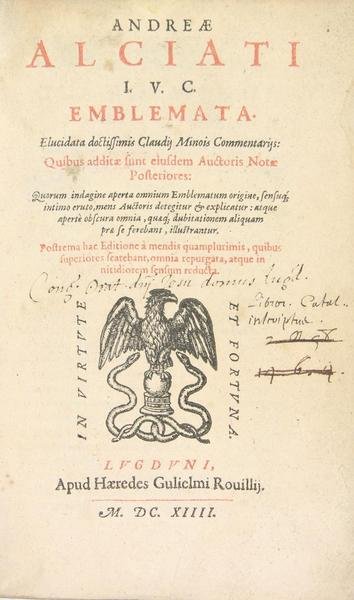 ANDREÆ
ALCIATI
I. V. C.
EMBLEMATA.
Elucidata doctissimis Claudij Minois Commentarijs:
Quibus additæ sunt eiusdem Auctoris Notæ
Posteriores:
Quorum indagine aperta omnium Emblematum origine, sensuq́;
intimo eruto, mens Auctoris detegitur & explicatur: atque
apertè obscura omnia, quæq́; dubitationem aliquam
præ se ferebant, illustrantur.
Postrema hac Editione à mendis quamplurimis, quibus
superiores scatebant, omnia repurgata, atque in
nitidiorem sensum reducta.
Cong. Orat. dni Jesu domus Lugd.
Catal.
IN VIRTVTE
ET FORTVNA.
LVGDVNI,
Apud Hæredes Gulielmi Rouillij.
M. DC. XIIII.